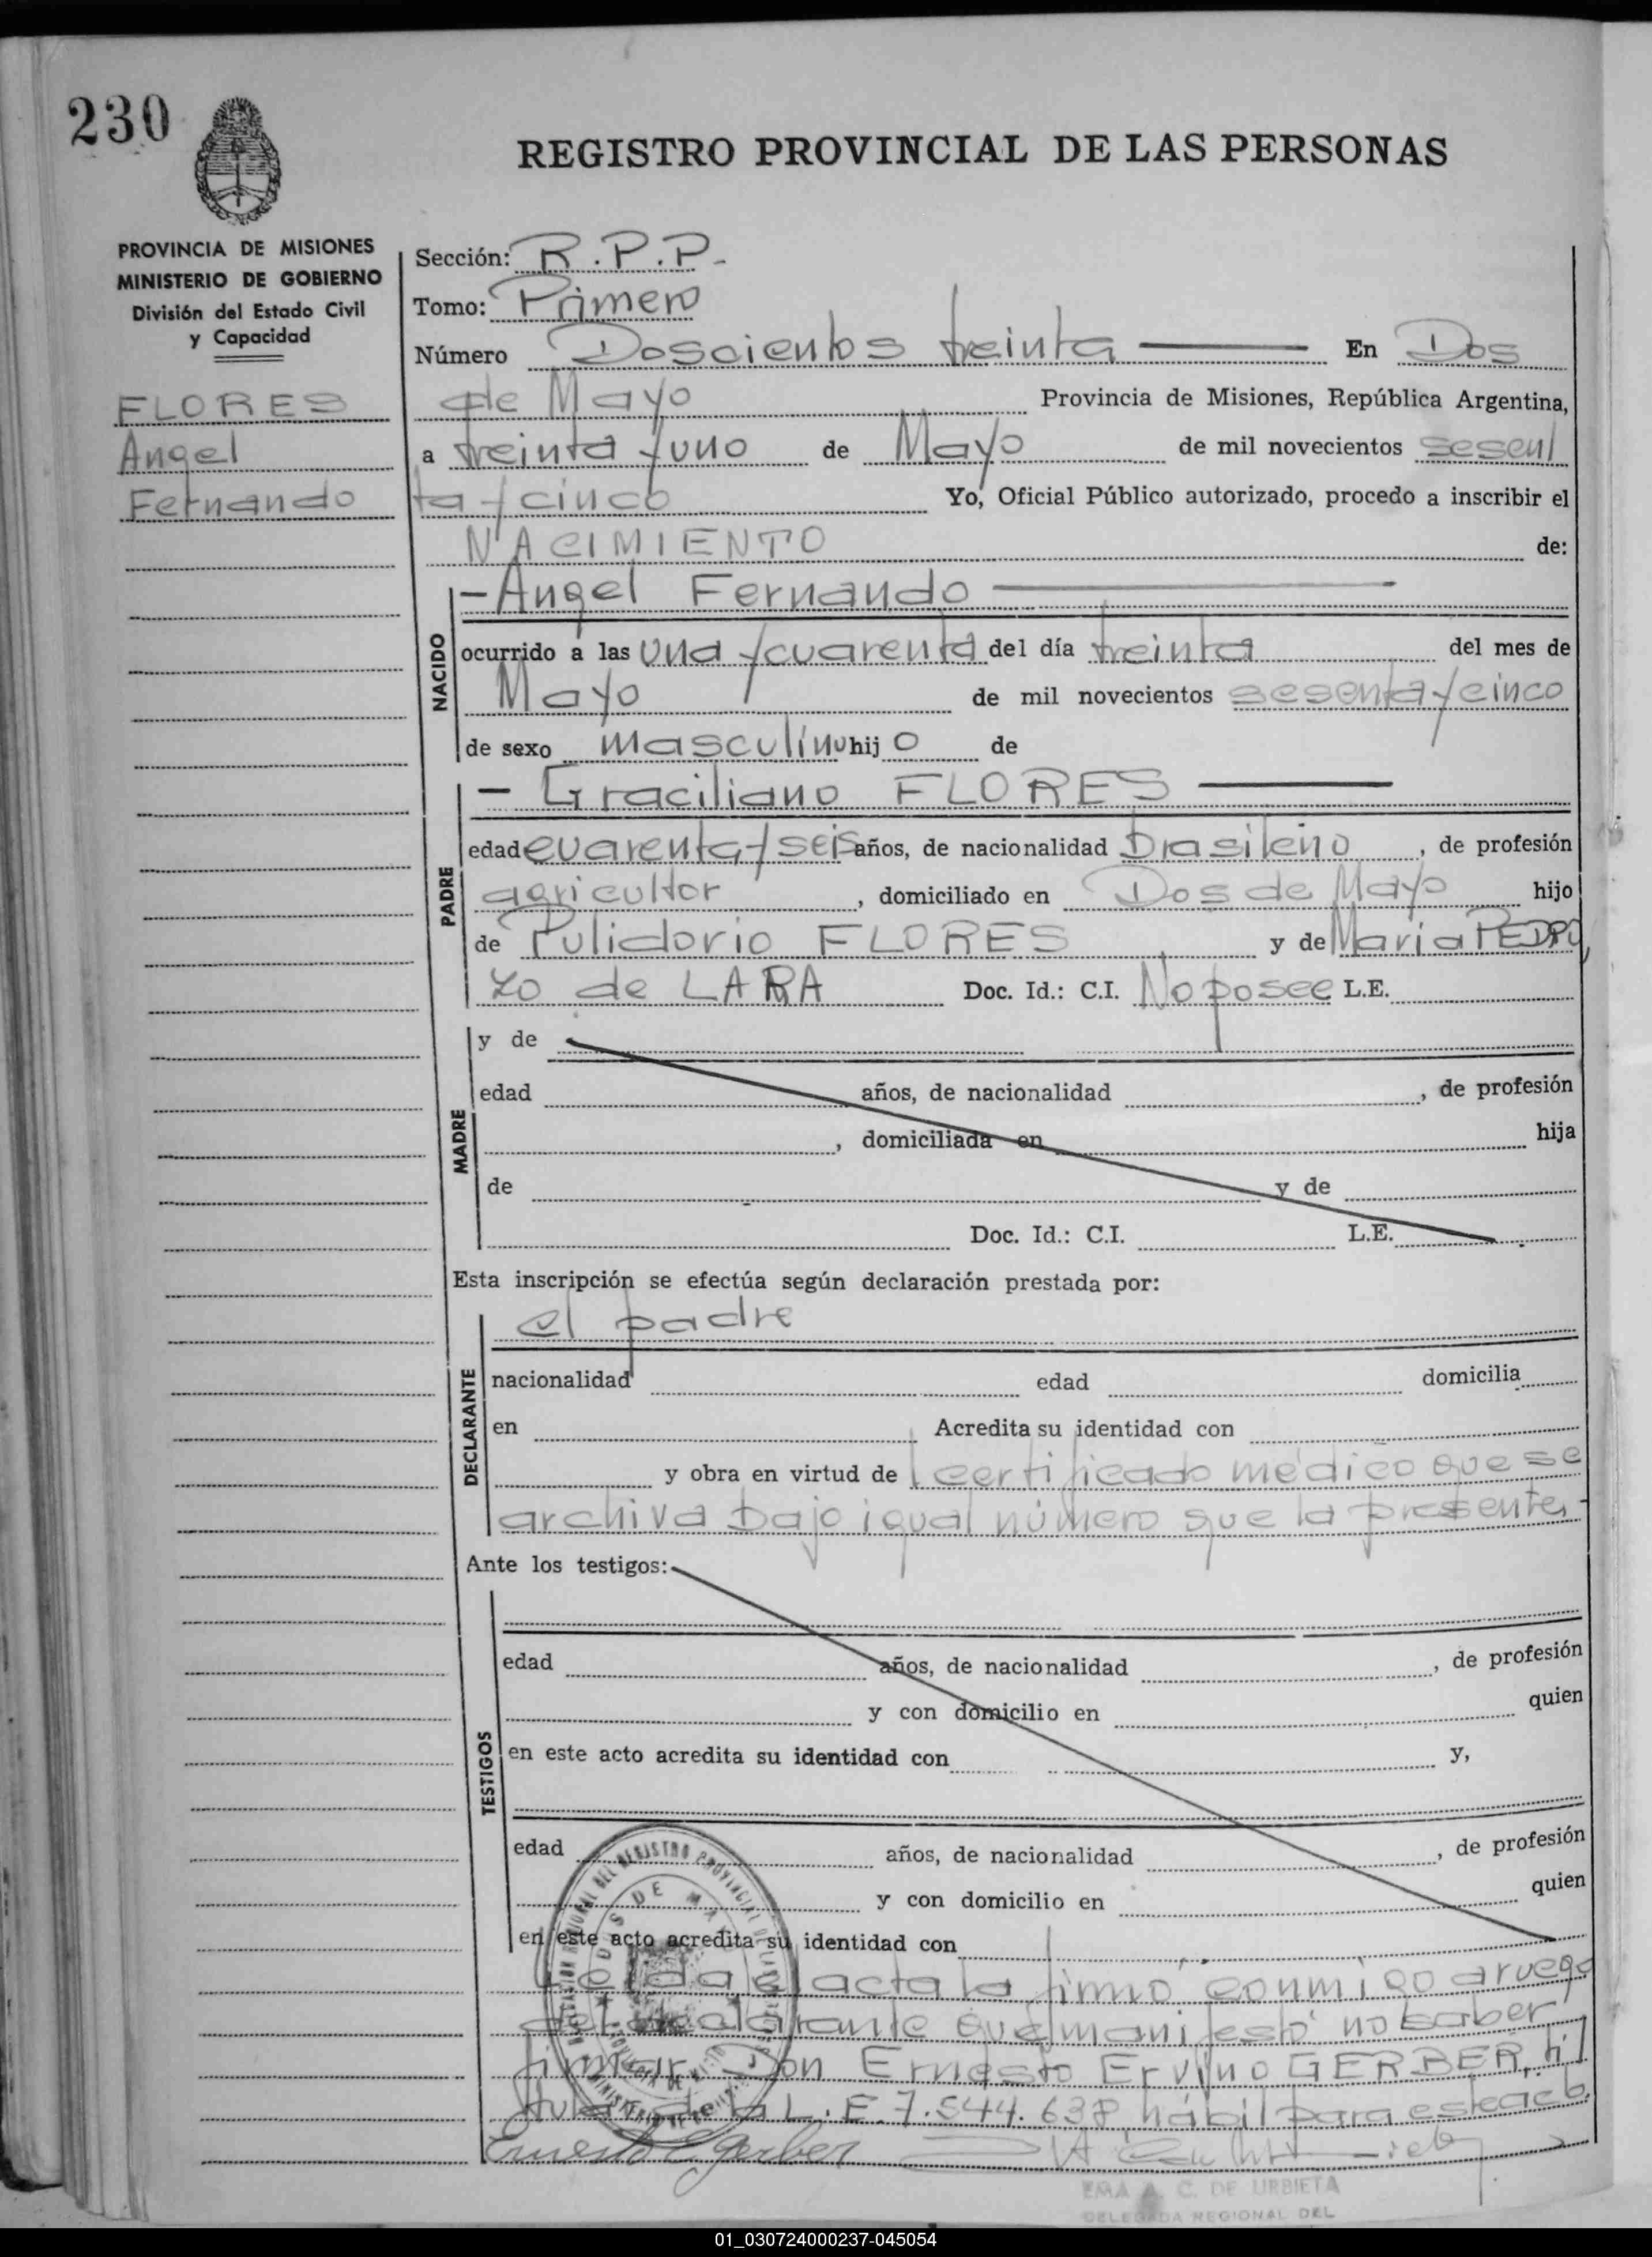 230
REGISTRO PROVINCIAL DE LAS PERSONAS
PROVINCIA DE MISIONES
MINISTERIO DE GOBIERNO
División del Estado Civil
y Capacidad
FLORES
Angel
Fernando
Sección: R.P.P.-
Tomo: Primero
Número Doscientos treinta En Dos
de Mayo Provincia de Misiones, República Argentina,
a treinta y uno de Mayo de mil novecientos sesen
ta y cinco Yo, Oficial Público autorizado, procedo a inscribir el
NACIMIENTO de:
NACIDO
- Angel Fernando
ocurrido a las una y cuarenta del día treinta del mes de
Mayo de mil novecientos sesenta y cinco
de sexo masculino hijo de
PADRE
- Graciliano FLORES
edad cuarenta y seis años, de nacionalidad brasileño, de profesión
agricultor, domiciliado en Dos de Mayo hijo
de Pulidorio FLORES y de Maria PEDRO
zo de LARA Doc. Id.: C.I. No posee L.E.
MADRE
y de
edad años, de nacionalidad , de profesión
, domiciliada en hija
de y de
Doc. Id.: C.I. L.E.
Esta inscripción se efectúa según declaración prestada por:
DECLARANTE
el padre
nacionalidad edad domicilia
en Acredita su identidad con
y obra en virtud de certificado médico que se
archiva bajo igual número que la presente.-
Ante los testigos:
TESTIGOS
edad años, de nacionalidad , de profesión
y con domicilio en quien
en este acto acredita su identidad con y,
edad años, de nacionalidad , de profesión
y con domicilio en quien
en este acto acredita su identidad con
Leida el acta la firmó conmigo a ruego
del declarante que manifestó no saber
firmar Don Ernesto Ervino GERBER, ti
tular de la L.E. 7.544.638 hábil para este acto.
Ernesto E Gerber
EMA A. C. DE URBIETA
DELEGADA REGIONAL DEL
01_030724000237-045054